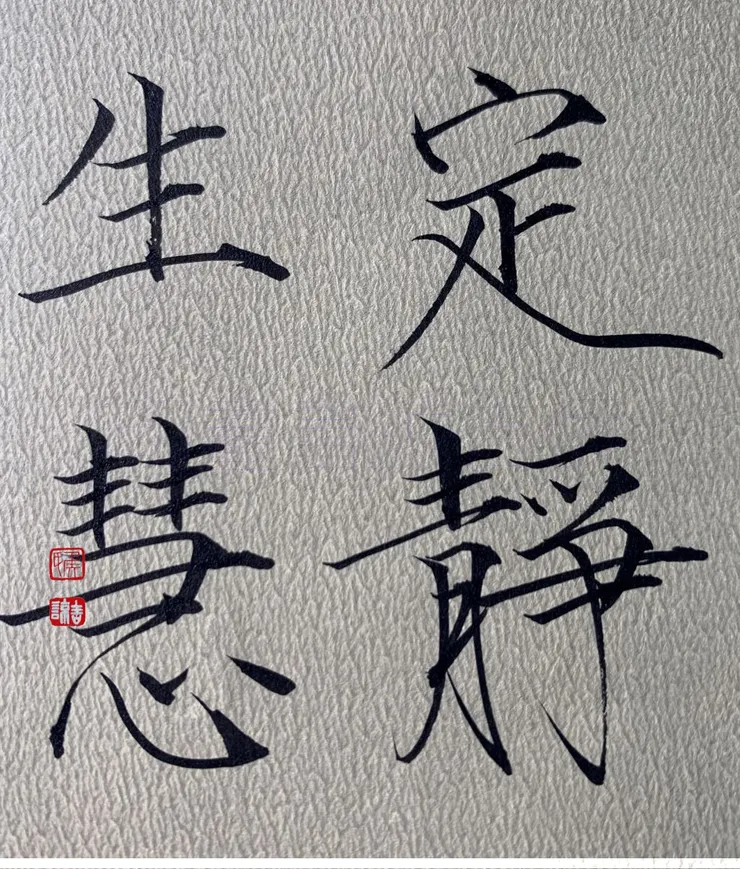 定靜
生慧